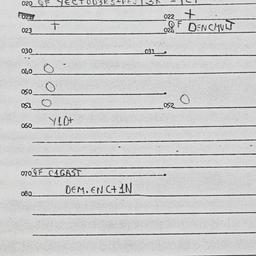 020
022 +
023 + 024 QF DENCMULT
030 031
040 O
050 O
051 O 052 O
060 Y1D+
070 QF C1GAST
080 DEM.ENC+1N